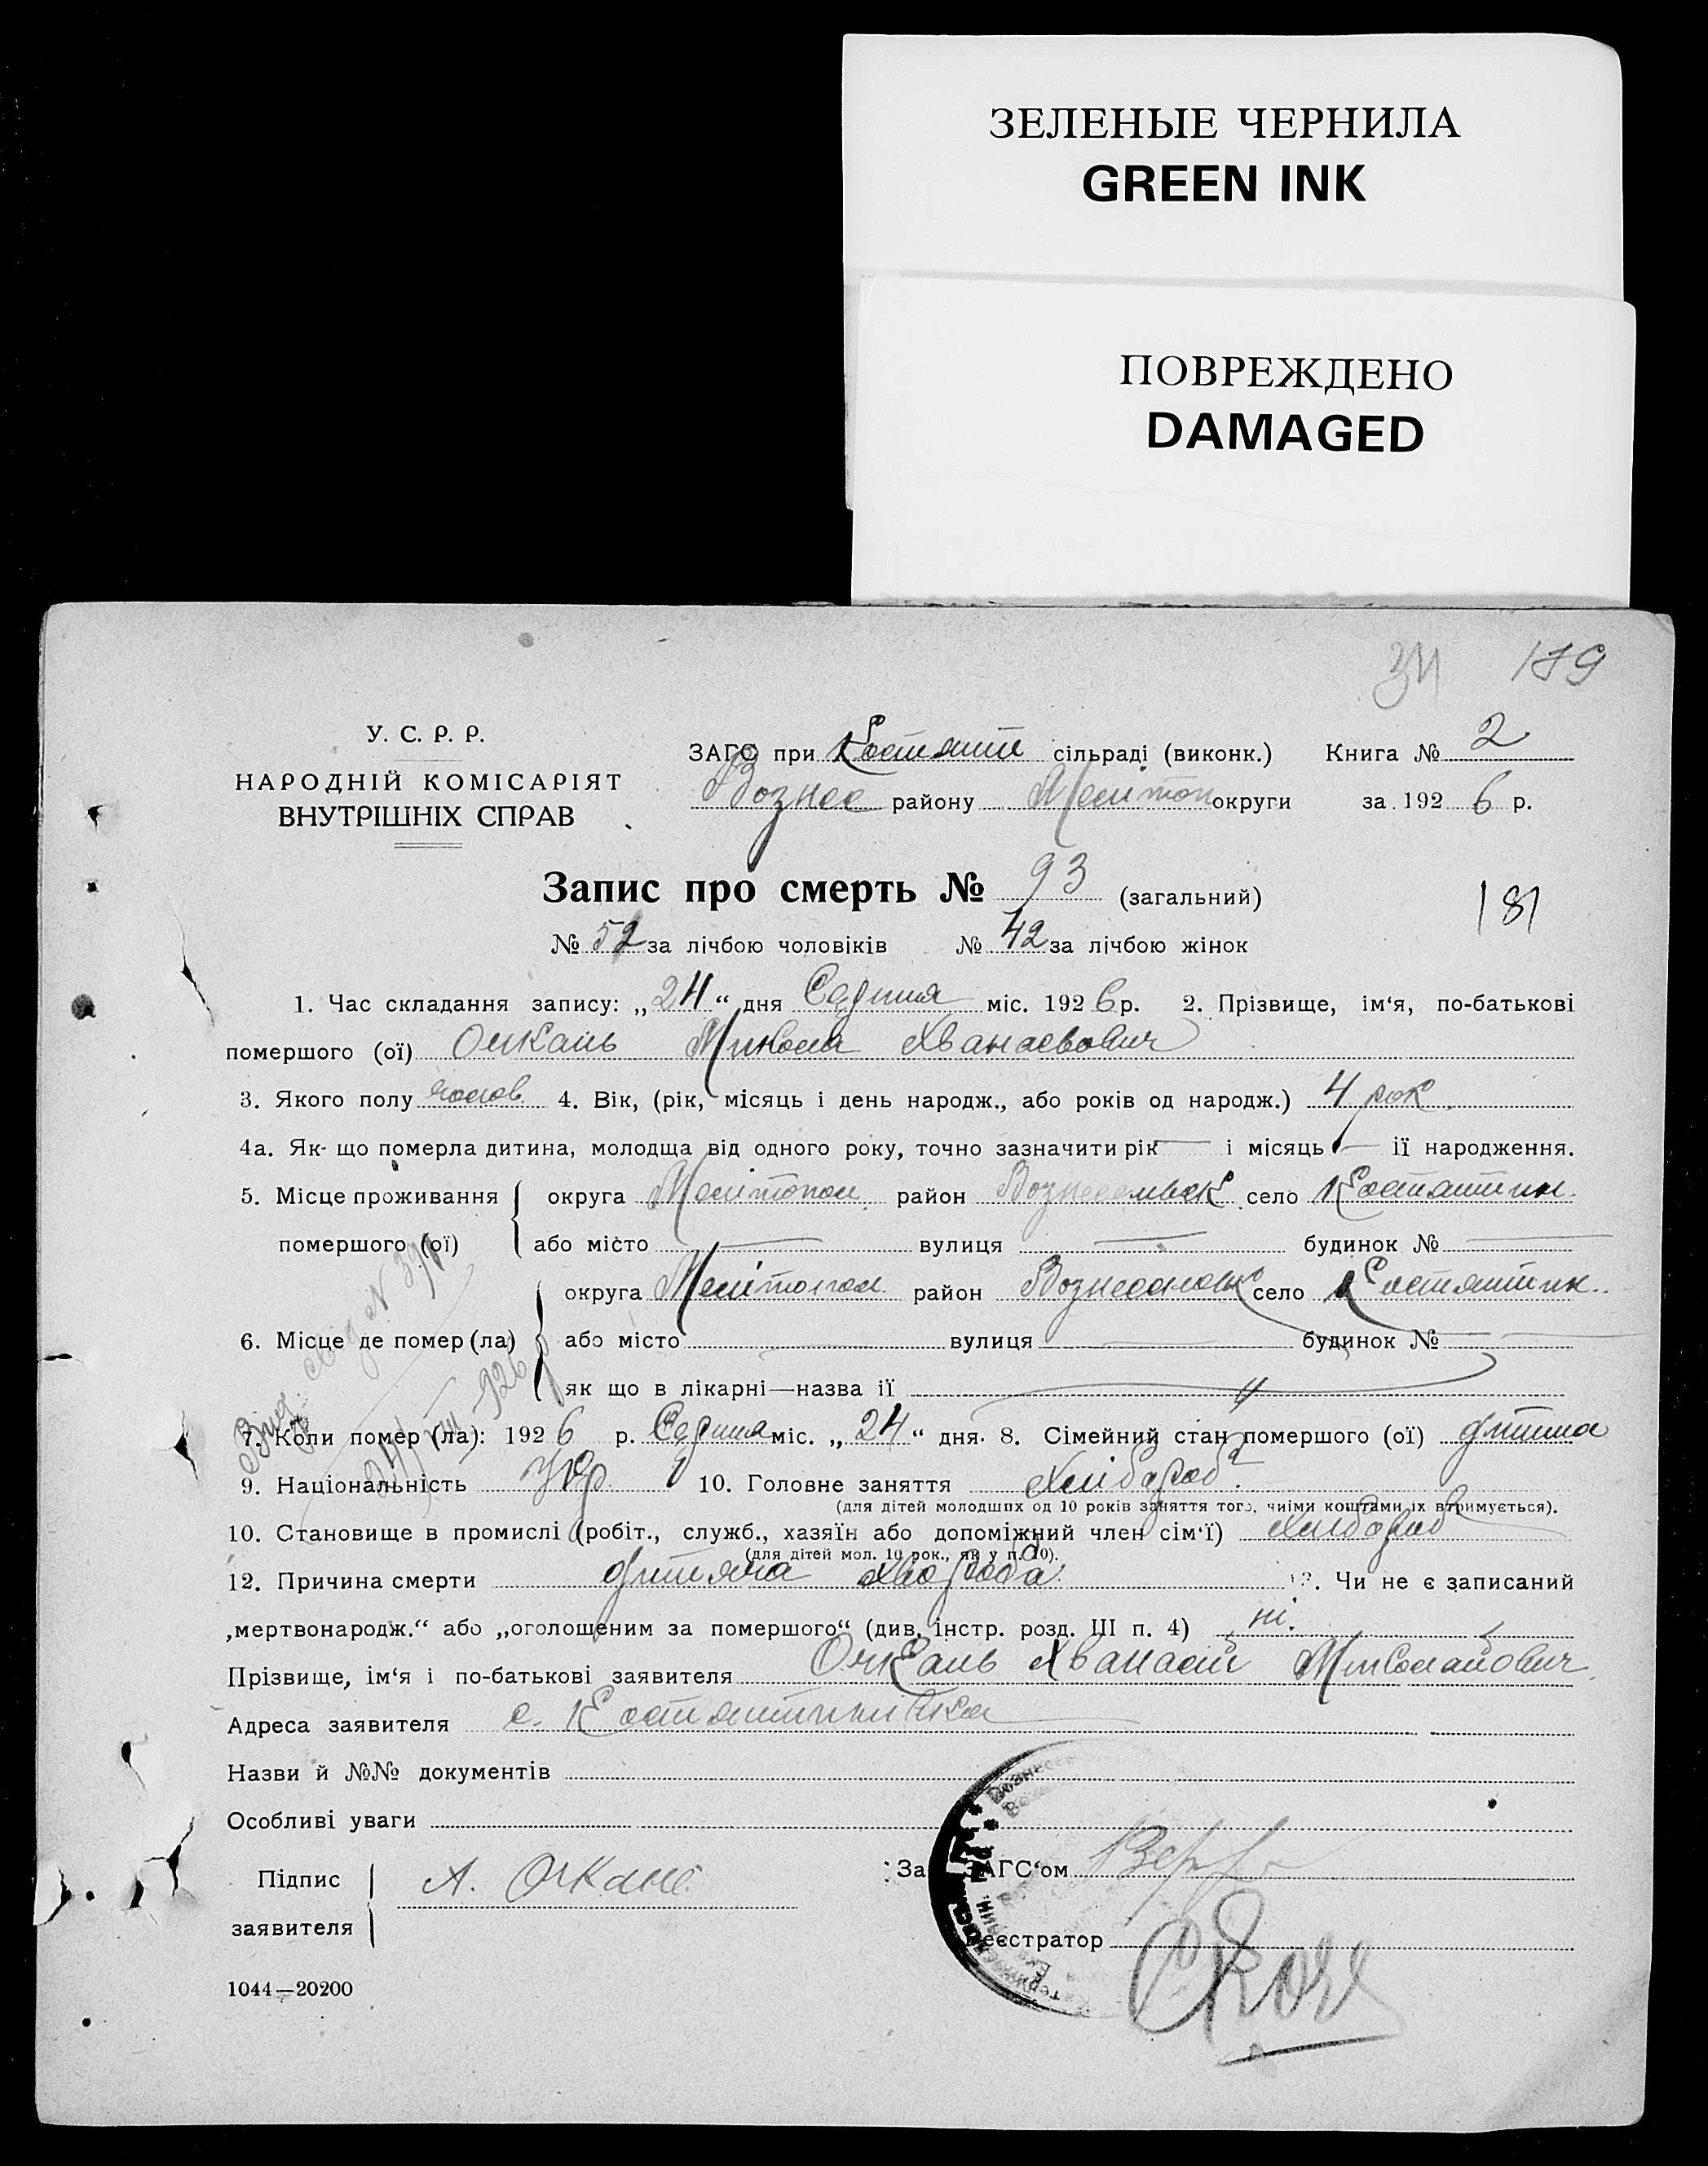 ЗЕЛЕНЫЕ ЧЕРНИЛА
GREEN INK
ПОВРЕЖДЕНО
DAMAGED
189
У. С. Р. Р.
НАРОДНІЙ КОМІСАРІЯТ
ВНУТРІШНІХ СПРАВ
ЗАГС при Костянт сільраді (виконк.) Книга № 2
Вознес району Мелітоп округи за 192 6 р.
Запис про смерть № 93 (загальний)
181
№ 52 за лічбою чоловіків № 42 за лічбою жінок
1. Час складання запису: „24“ дня Серпня міс. 192 6 р. 2. Прізвище, ім‘я, по-батькові
помершого (ої) Очкань Микола Хванасьвович
3. Якого полу чолов. 4. Вік, (рік, місяць і день народж., або років од народж.) 4 рок.
4а. Як- що померла дитина, молодща від одного року, точно зазначити рік — і місяць — ії народження.
5. Місце проживання округа Мелітопол район Вознесенськ село Костянтин.
помершого (ої) або місто — вулиця — будинок № —
округа Мелітопол район Вознесенськ село Костянтин.
6. Місце де помер (ла) або місто вулиця — будинок № —
як що в лікарні—назва ії
7. Коли помер (ла): 192 6 р. Серпня міс. „24“ дня. 8. Сімейний стан помершого (ої) дитина
9. Національність укр 10. Головне заняття хлібороб
(для дітей молодших од 10 років заняття того, чиїми коштами їх втримується).
10. Становище в промислі (робіт., служб., хазяїн або допоміжний член сім‘ї) хлібороб
(для дітей мол. 10 рок., як у п. 10).
12. Причина смерти дитяча хвороба. 13. Чи не є записаний
„мертвонародж.“ або „оголошеним за помершого“ (див. інстр. розд. III п. 4) ні.
Прізвище, ім‘я і по-батькові заявителя Очкань Хванасій Миколайович
Адреса заявителя с. Костянтинівка
Назви й №№ документів
Особливі уваги
Підпис
заявителя
А. Очкань
Зав ЗАГС‘ом
Реєстратор
1044—20200